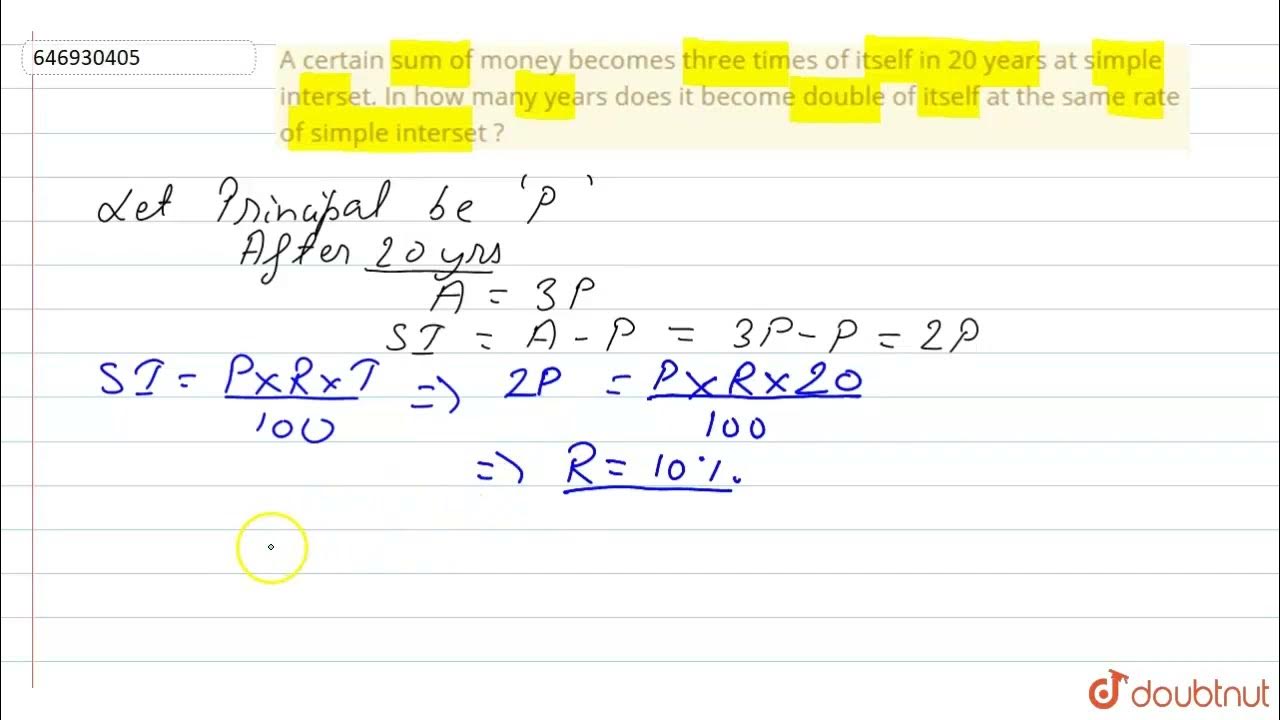 646930405
A certain sum of money becomes three times of itself in 20 years at simple
interset. In how many years does it become double of itself at the same rate
of simple interset ?
Let Principal be 'P'
After 20 yrs
A = 3P
SI = A - P = 3P - P = 2P
SI = P×R×T/100 => 2P = P×R×20/100
=> R = 10%.
doubtnut